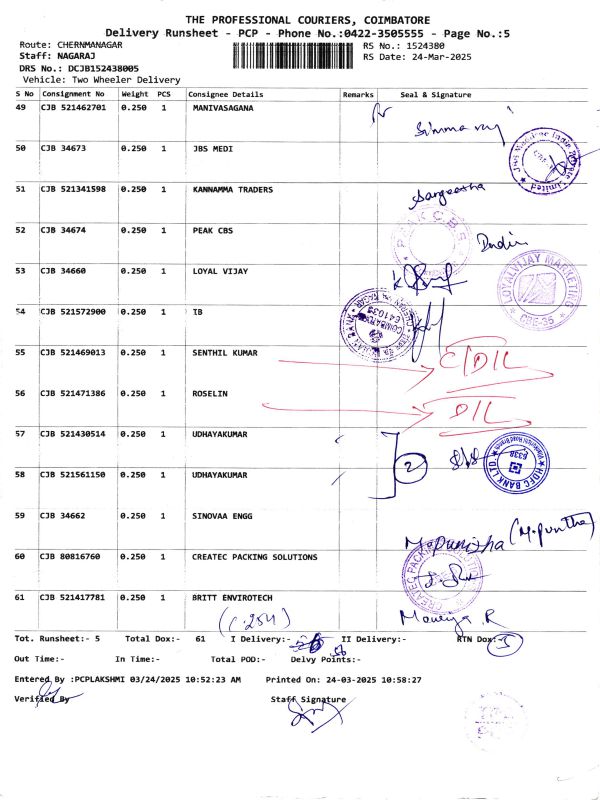 THE PROFESSIONAL COURIERS, COIMBATORE
Delivery Runsheet - PCP - Phone No.:0422-3505555 - Page No.:5
Route: CHERNMANAGAR RS No.: 1524380
Staff: NAGARAJ RS Date: 24-Mar-2025
DRS No.: DCJB152438005
Vehicle: Two Wheeler Delivery
S No Consignment No Weight PCS Consignee Details Remarks Seal & Signature
49 CJB 521462701 0.250 1 MANIVASAGANA
50 CJB 34673 0.250 1 JBS MEDI
51 CJB 521341598 0.250 1 KANNAMMA TRADERS Sangeetha
52 CJB 34674 0.250 1 PEAK CBS PEAK CBS
53 CJB 34660 0.250 1 LOYAL VIJAY LOYALVIJAY MARKETING CBE-35
54 CJB 521572900 0.250 1 IB COIMBATORE 641035
55 CJB 521469013 0.250 1 SENTHIL KUMAR C/D/L
56 CJB 521471386 0.250 1 ROSELIN D/L
57 CJB 521430514 0.250 1 UDHAYAKUMAR 2 HDFC BANK LTD
58 CJB 521561150 0.250 1 UDHAYAKUMAR
59 CJB 34662 0.250 1 SINOVAA ENGG M.Punisha
60 CJB 80816760 0.250 1 CREATEC PACKING SOLUTIONS
61 CJB 521417781 0.250 1 BRITT ENVIROTECH
Tot. Runsheet:- 5 Total Dox:- 61 I Delivery:- 56 II Delivery:- RTN Dox:- 3
Out Time:- In Time:- Total POD:- Delvy Points:-
Entered By :PCPLAKSHMI 03/24/2025 10:52:23 AM Printed On: 24-03-2025 10:58:27
Verified By Staff Signature